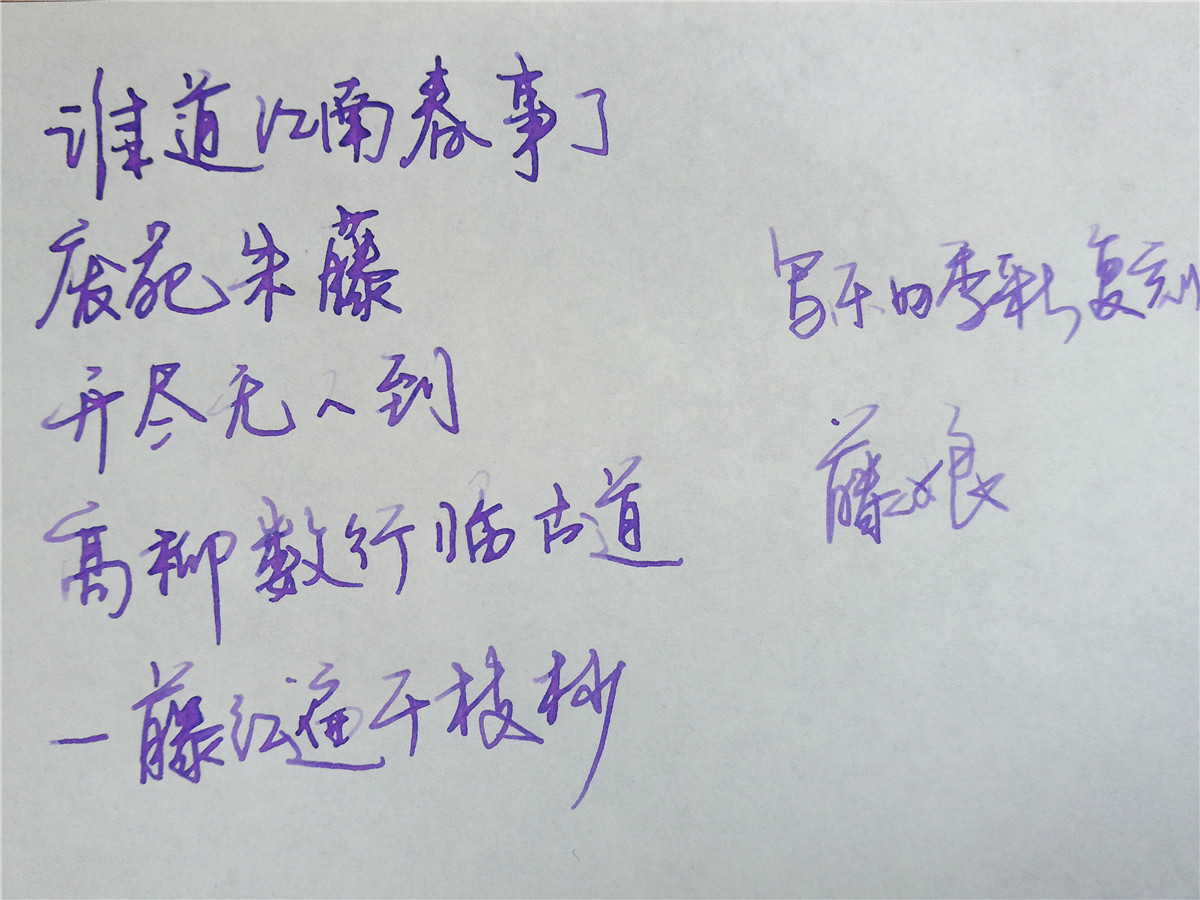 谁道江南春事了
废苑朱藤
开尽无人到
高柳数行临古道
一藤红遍千枝杪
写乐四季彩复刻
藤娘